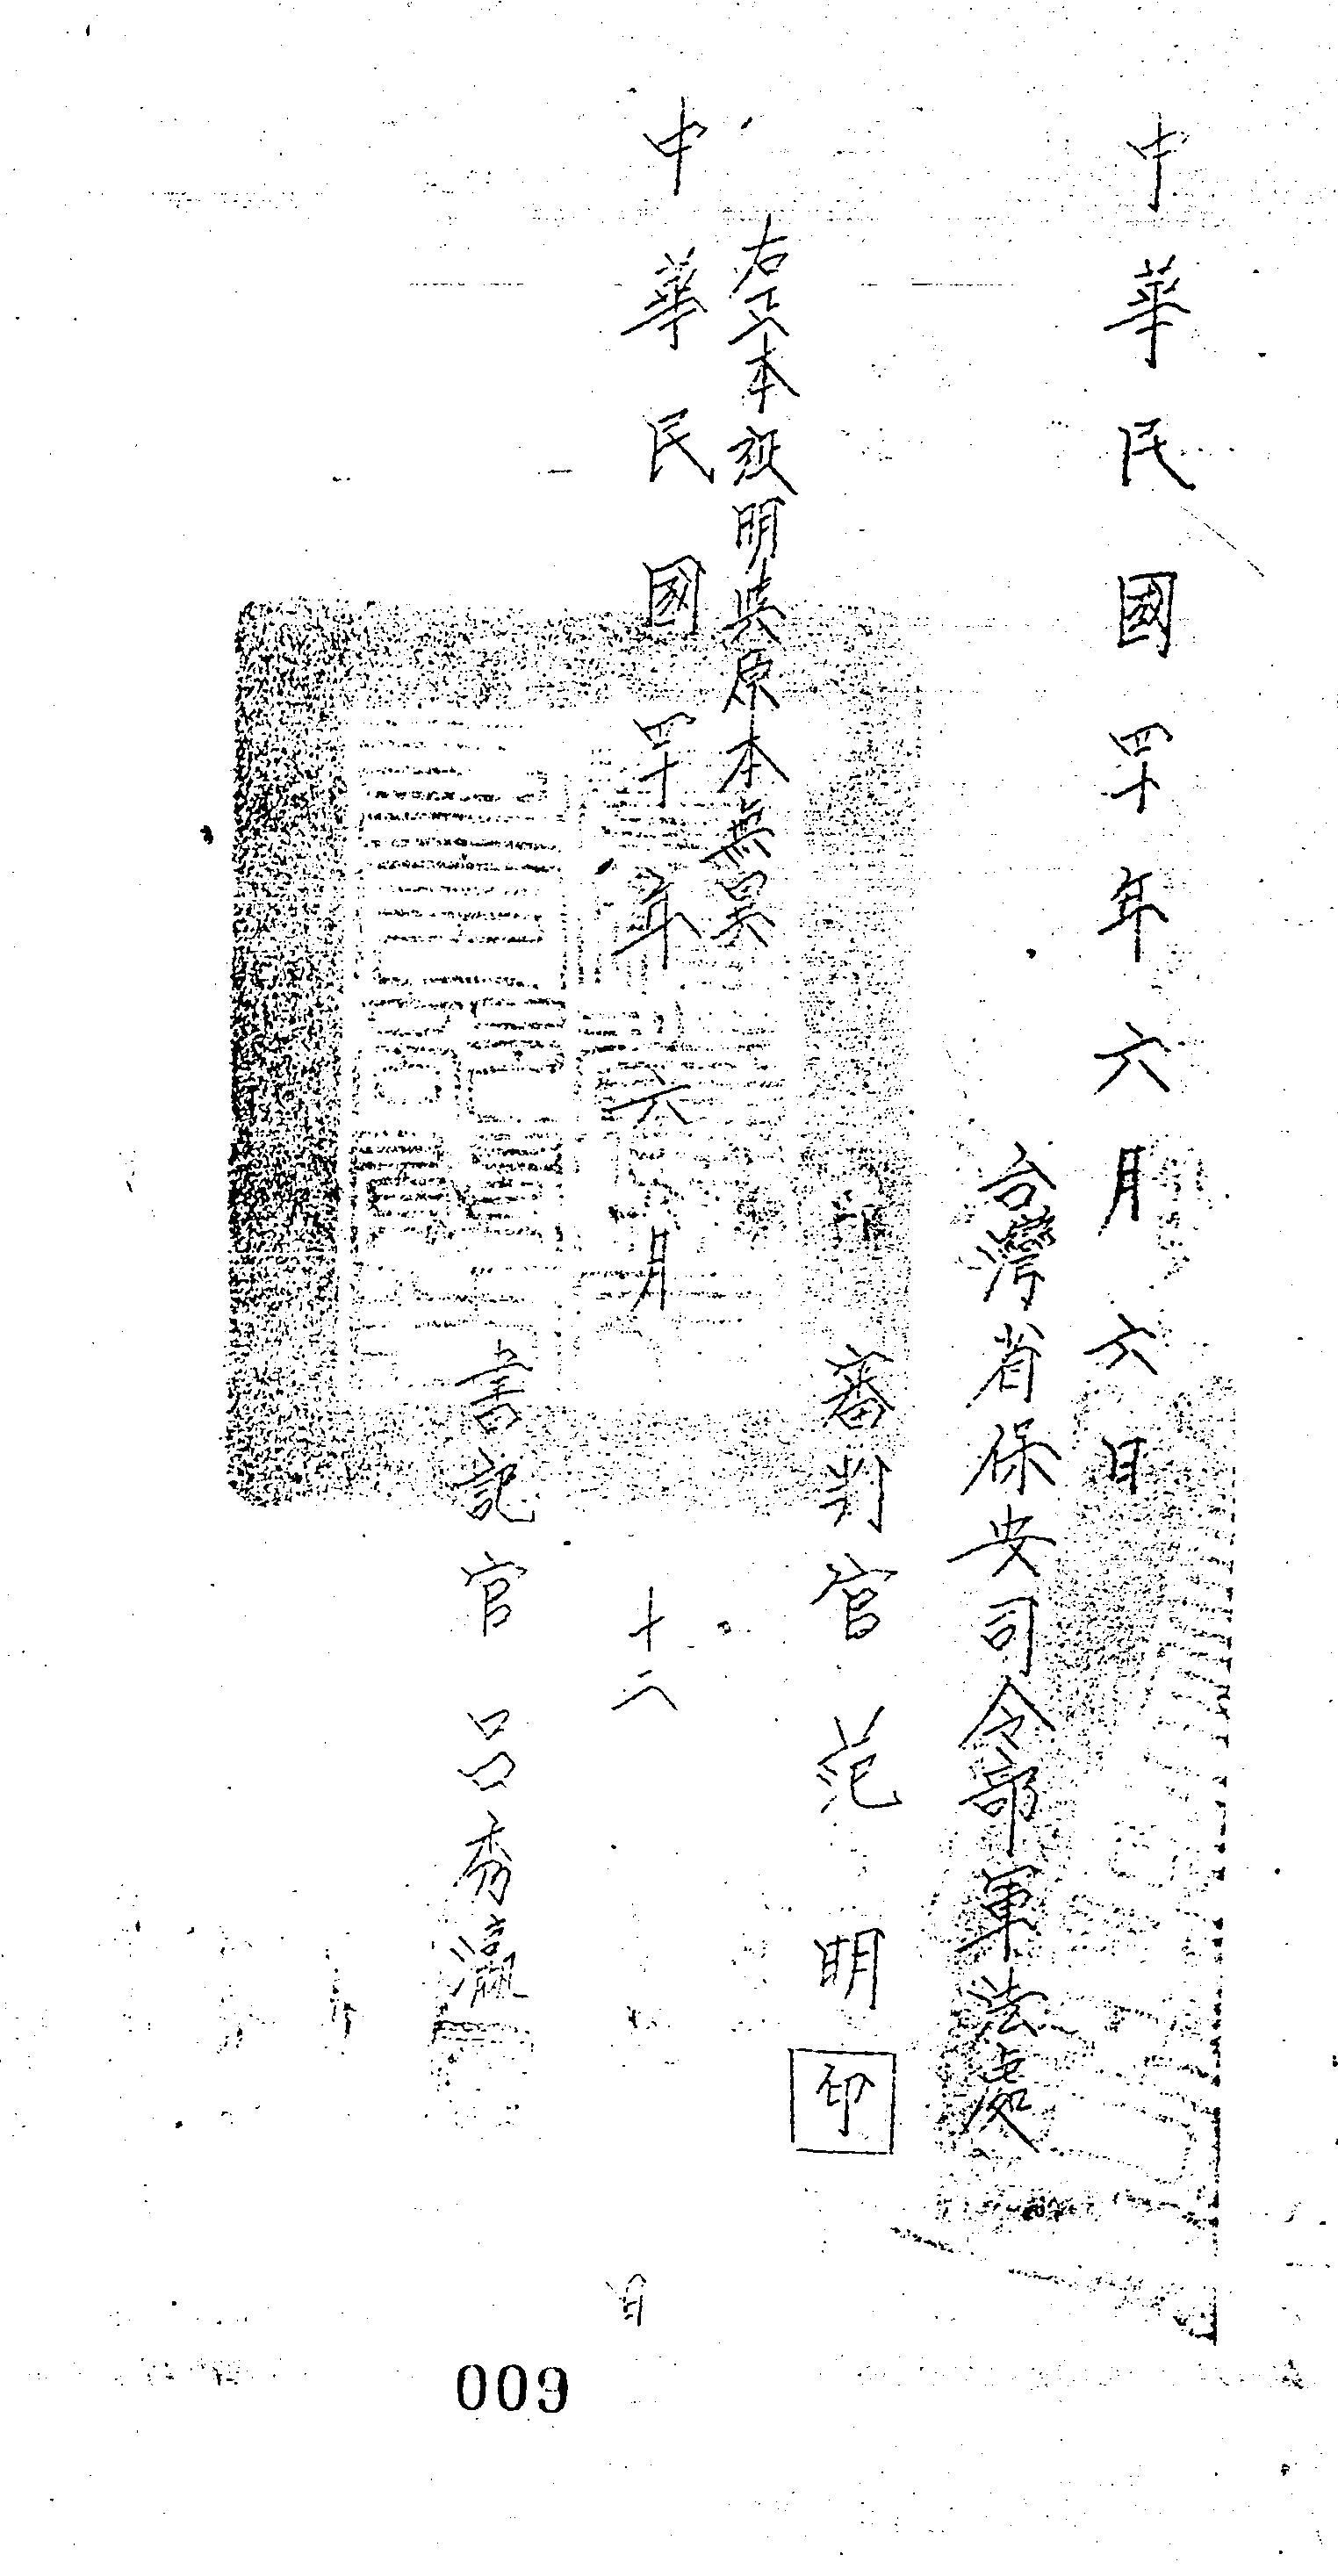 中華民國四十年六月六日
台灣省保安司令部軍法處
審判官范明印
右正本證明與原本無異
中華民國四十年六月十八日
書記官呂秀瀛
009